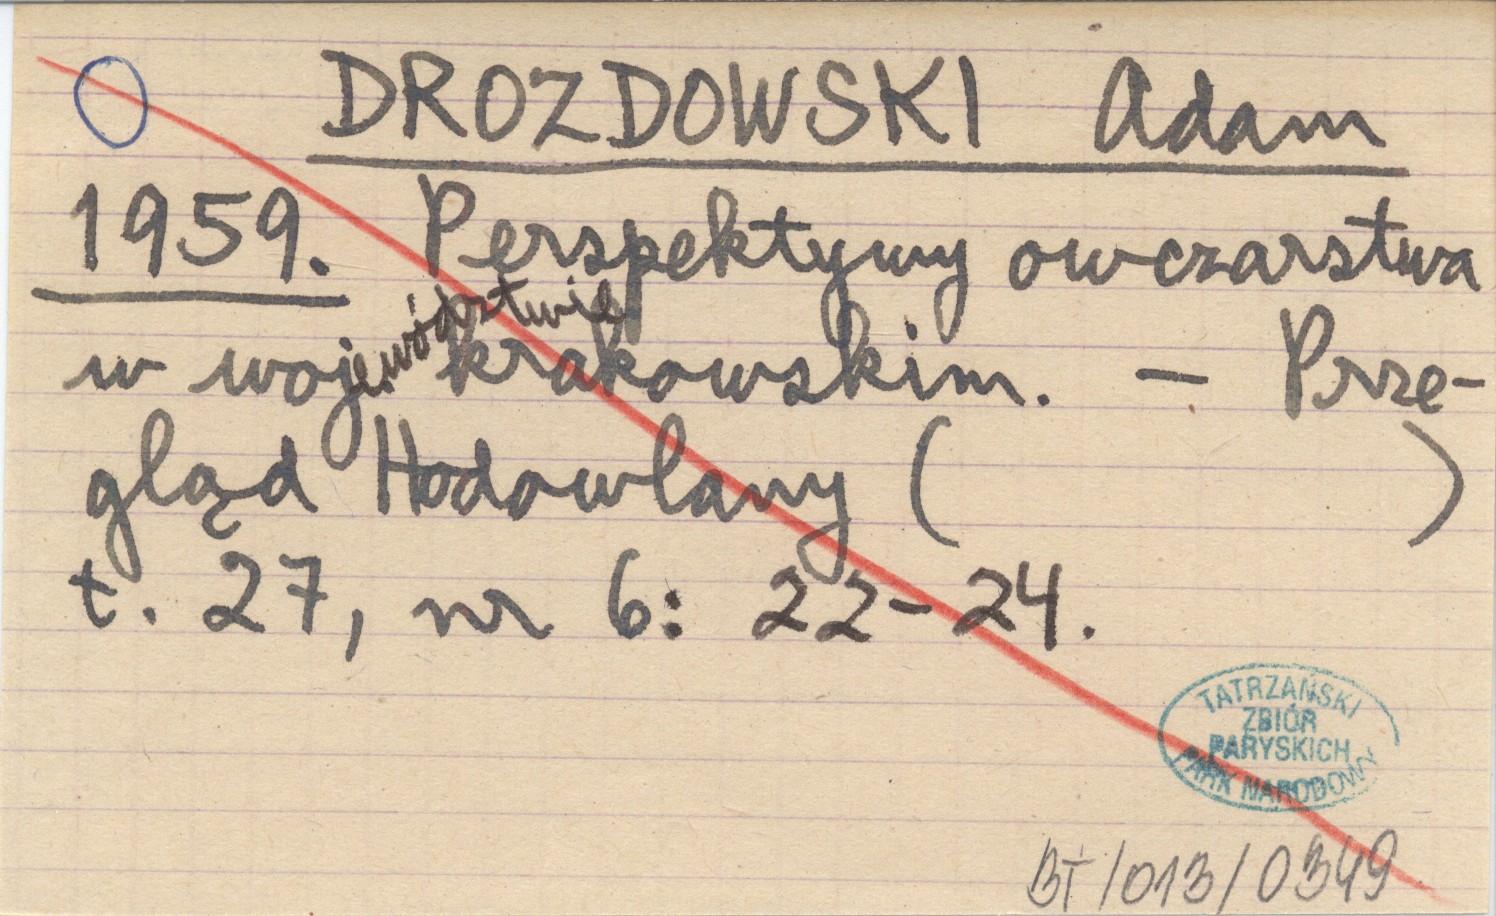 DROZDOWSKI Adam
1959. Perspektywy owczarstwa
w województwie krakowskim. – Prze-
gląd Hodowlany ( )
t. 27, nr 6: 22–24.
TATRZAŃSKI
ZBIÓR
PARYSKICH
PARK NARODOWY
BT/013/0349